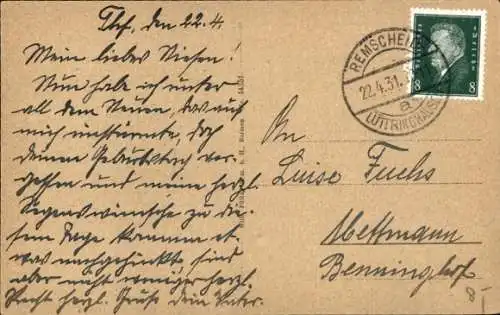 den 22.4.
Mein liebes
Nun habe ich unter
all dem Neuen, das auf
mich einstürmte, doch
deinen Geburtstag ver-
gessen und meine herzl.
Segenswünsche zu die-
sem Tage kommen et-
was nachgehinkt sind
aber nicht weniger herzl.
Recht herzl. Grüße dein
REMSCHEID
22.4.31.
a
LÜTTRINGHAUSEN
8 8
An
Luise Fuchs
Mettmann
Benninghof
8-